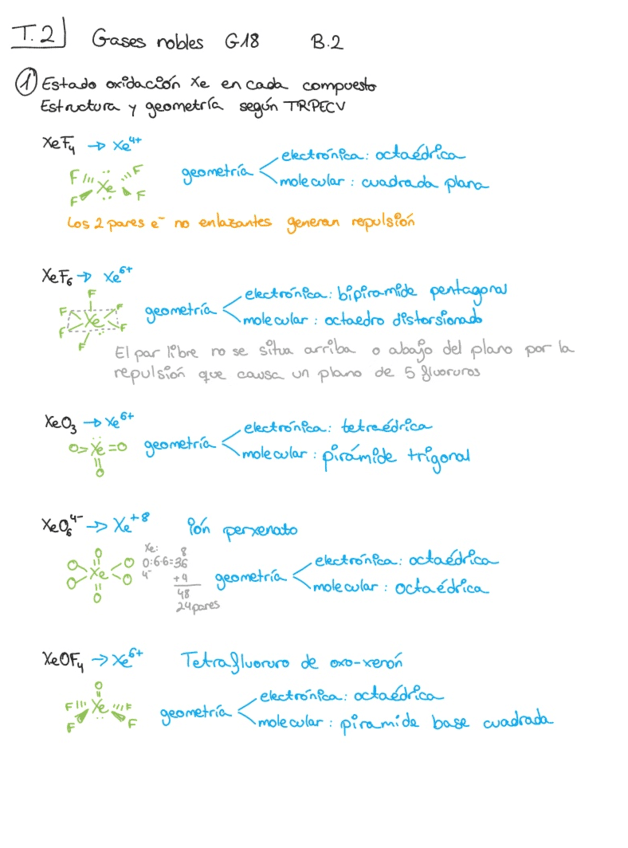 T.2 Gases nobles G18 B.2
① Estado oxidación Xe en cada compuesto
Estructura y geometría según TRPECV
XeF₄ → Xe⁴⁺
geometría
electrónica: octaédrica
molecular: cuadrada plana
F F
Xe
F F
Los 2 pares e⁻ no enlazantes generan repulsión
XeF₆ → Xe⁶⁺
geometría
electrónica: bipiramide pentagonal
molecular: octaedro distorsionado
F
F F
Xe
F F
F
El par libre no se situa arriba o abajo del plano por la
repulsión que causa un plano de 5 fluoruros
XeO₃ → Xe⁶⁺
geometría
electrónica: tetraédrica
molecular: pirámide trigonal
O=Xe=O
O
XeO₆⁴⁻ → Xe⁺⁸ ión perxenato
O
O O
Xe
O O
O
Xe: 8
O:6·6=36
4⁻ +4
48
24 pares
geometría
electrónica: octaédrica
molecular: octaédrica
XeOF₄ → Xe⁶⁺ Tetrafluoruro de oxo-xenón
O
F Xe F
F F
geometría
electrónica: octaédrica
molecular: piramide base cuadrada